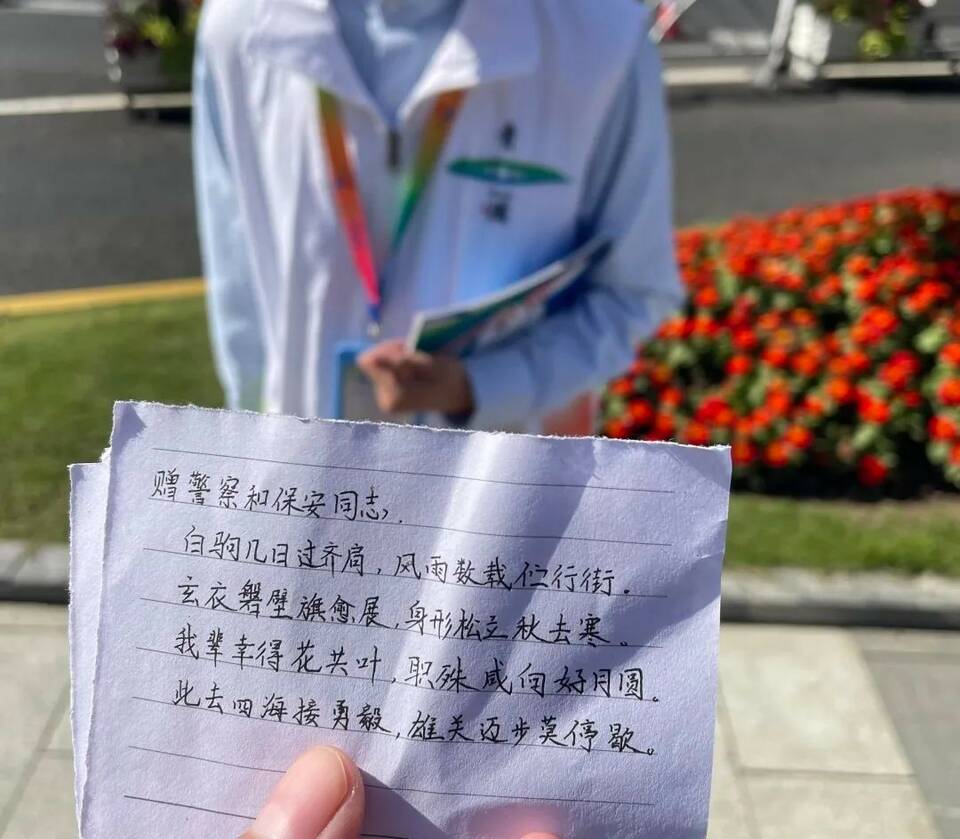 赠警察和保安同志,
白驹几日过齐肩,风雨数载伫行街。
玄衣磐壁旗愈展,身形松立秋去寒。
我辈幸得花共叶,职殊咸向好月圆。
此去四海接勇毅,雄关迈步莫停歇。